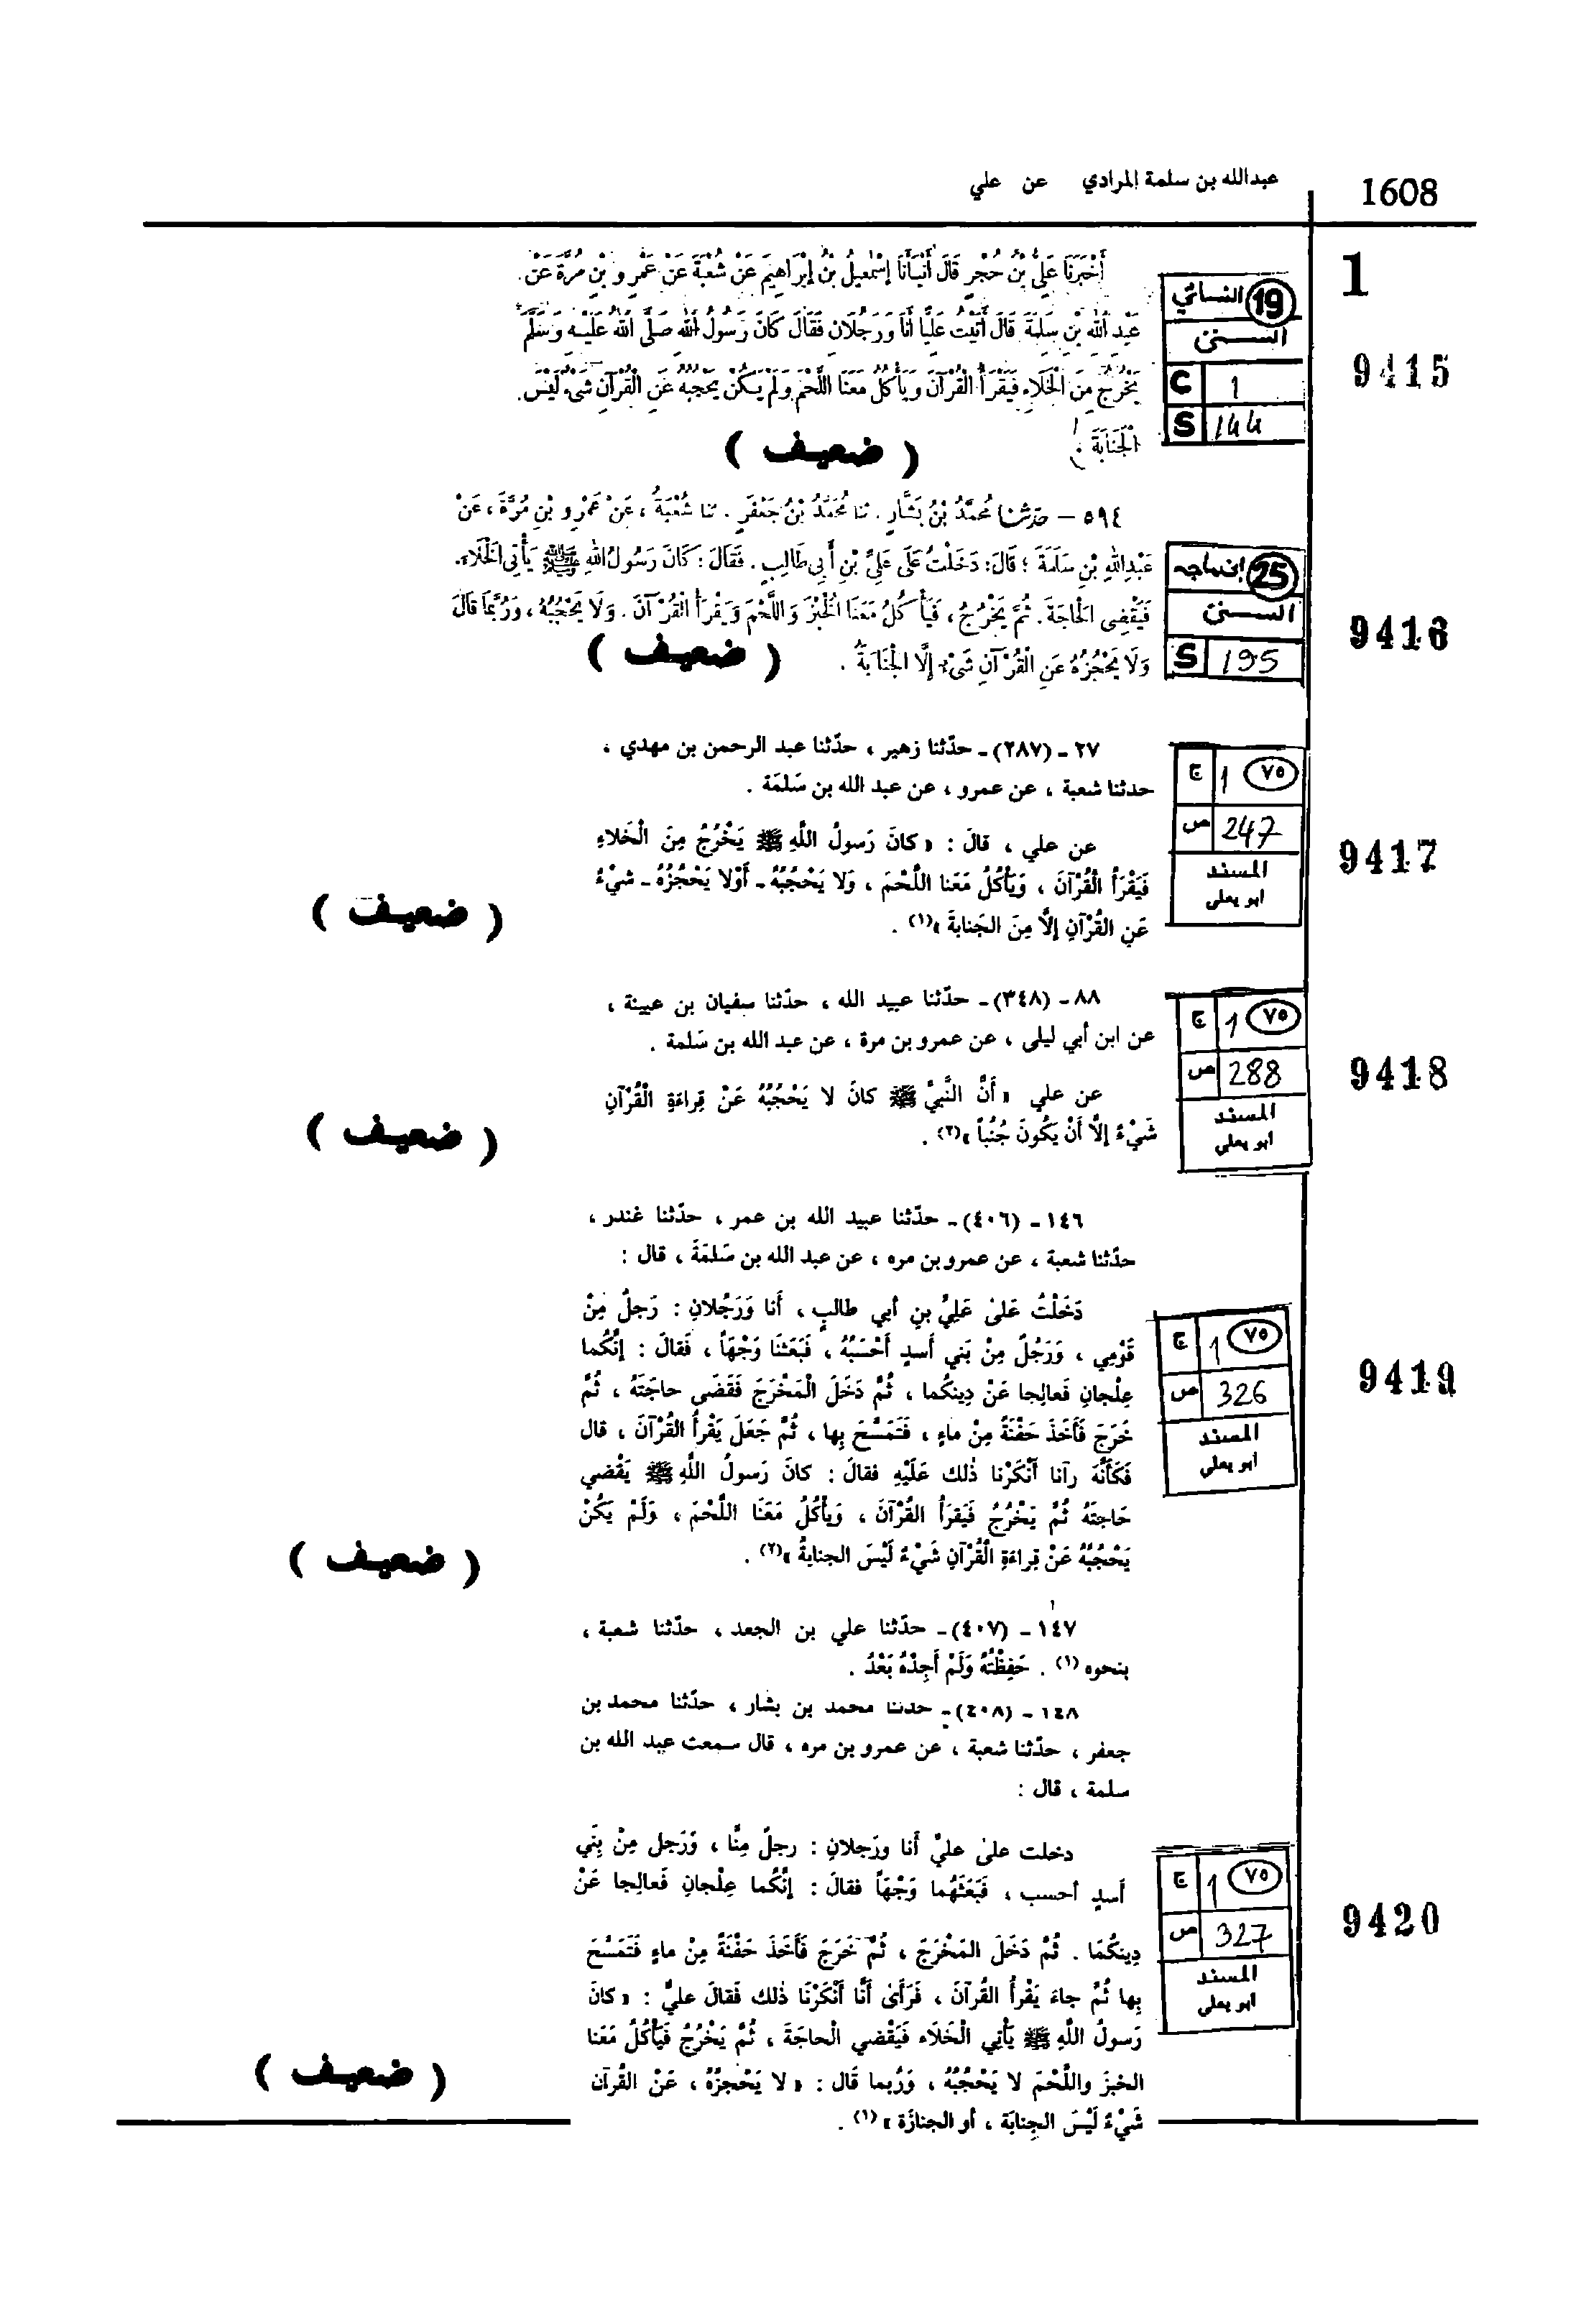 1608
عبدالله بن سلمة المرادي عن علي
1
أَخْبَرَنَا عَلِيُّ بْنُ حُجْرٍ قَالَ أَنْبَأَنَا إِسْمَعِيلُ بْنُ إِبْرَاهِيمَ عَنْ شُعْبَةَ عَنْ عَمْرِو بْنِ مُرَّةَ عَنْ
عَبْدِ اللهِ بْنِ سَلِمَةَ قَالَ أَتَيْتُ عَلِيًّا أَنَا وَرَجُلَانِ فَقَالَ كَانَ رَسُولُ اللهِ صَلَّى اللهُ عَلَيْهِ وَسَلَّمَ
يَخْرُجُ مِنَ الْخَلَاءِ فَيَقْرَأُ الْقُرْآنَ وَيَأْكُلُ مَعَنَا اللَّحْمَ وَلَمْ يَكُنْ يَحْجُبُهُ عَنِ الْقُرْآنِ شَىْءٌ لَيْسَ
الْجَنَابَةَ .
( ضعيف )
النسائي 19
السنن
C 1
S 144
9415
٥٩٤ – حدثنا مُحَمَّدُ بْنُ بَشَّارٍ . ثنا مُحَمَّدُ بْنُ جَعْفَرٍ . ثنا شُعْبَةُ ، عَنْ عَمْرِو بْنِ مُرَّةَ ، عَنْ
عَبْدِ اللهِ بْنِ سَلَمَةَ ؛ قَالَ: دَخَلْتُ عَلَى عَلِيِّ بْنِ أَبِي طَالِبٍ . فَقَالَ : كَانَ رَسُولُ اللهِ ﷺ يَأْتِي الْخَلَاءَ.
فَيَقْضِى الْحَاجَةَ . ثُمَّ يَخْرُجُ ، فَيَأْكُلُ مَعَنَا الْخُبْزَ وَاللَّحْمَ وَيَقْرَأُ الْقُرْآنَ . وَلَا يَحْجُبُهُ ، وَرُبَّمَا قَالَ
وَلَا يَحْجُزُهُ عَنِ الْقُرْآنِ شَىْءٌ إِلَّا الْجَنَابَةُ .
( ضعيف )
ابن ماجه 25
السنن
S 195
9416
٢٧ - (٢٨٧) - حدّثنا زهير ، حدّثنا عبد الرحمن بن مهدي ،
حدثنا شعبة ، عن عمرو ، عن عبد الله بن سَلَمَة .
عن علي ، قالَ : « كانَ رَسولُ اللَّهِ ﷺ يَخْرُجُ مِنَ الْخَلاءِ
فَيَقْرَأُ الْقُرْآنَ ، وَيَأْكُلُ مَعَنا اللَّحْمَ ، وَلا يَحْجُبُهُ - أَوْلا يَحْجُزُهُ - شَيْءٌ
عَنِ القُرْآنِ إلَّا مِنَ الجَنابةَ »(١) .
( ضعيف )
ج 1 ٧٥
ص 247
المسند
ابو يعلى
9417
٨٨ - (٣٤٨) - حدّثنا عبيد الله ، حدّثنا سفيان بن عيينة ،
عن ابن أبي ليلى ، عن عمرو بن مرة ، عن عبد الله بن سَلمة .
عن علي « أَنَّ النَّبيَّ ﷺ كانَ لا يَحْجُبُهُ عَنْ قِراءَةِ الْقُرْآنِ
شَيْءٌ إلَّا أَنْ يَكُونَ جُنُباً »(٢) .
( ضعيف )
ج 1 ٧٥
ص 288
المسند
ابو يعلى
9418
١٤٦ - (٤٠٦) - حدّثنا عبيد الله بن عمر ، حدّثنا غندر ،
حدّثنا شعبة ، عن عمرو بن مره ، عن عبد الله بن سَلمَةَ ، قال :
دَخَلْتُ عَلىٰ عَلِيِّ بنِ أبي طالبٍ ، أَنا وَرَجُلانِ : رَجلٌ مِنْ
قَوْمِي ، وَرَجُلٌ مِنْ بَني أَسدٍ أَحْسَبُهُ ، فَبَعَثَنَا وَجْهَاً ، فَقالَ : إنَّكُما
عِلْجانِ فَعالِجا عَنْ دِينِكُما ، ثُمَّ دَخَلَ الْمَخْرَجَ فَقَضَى حاجَتَهُ ، ثُمَّ
خَرَجَ فَأَخَذَ حَفْنَةً مِنْ ماءٍ ، فَتَمَسَّحَ بِها ، ثُمَّ جَعَلَ يَقْرأُ القُرْآنَ ، قال
فَكَأَنَّهُ رآنا أَنْكَرْنا ذٰلك عَلَيْهِ فقالَ : كانَ رَسولُ اللَّهِ ﷺ يَقْضي
حَاجتَهُ ثُمَّ يَخْرُجُ فَيَقرَأُ القُرْآنَ ، وَيَأْكُلُ مَعَنَا اللَّحْمَ ، وَلَمْ يَكُنْ
يَحْجُبُهُ عَنْ قِراءَةِ الْقُرْآنِ شَيْءٌ لَيْسَ الجنابةُ »(٢) .
( ضعيف )
ج 1 ٧٥
ص 326
المسند
ابو يعلى
9419
١٤٧ - (٤٠٧) - حدّثنا علي بن الجعد ، حدّثنا شعبة ،
بنحوه (١) . حَفِظْتُهُ وَلَمْ أَجِدْهُ بَعْدُ .
١٤٨ - (٤٠٨) - حدثنا محمد بن بشار ، حدّثنا محمد بن
جعفر ، حدّثنا شعبة ، عن عمرو بن مره ، قال سمعت عبد الله بن
سلمة ، قال :
دخلت علىٰ عليٍّ أَنا ورَجلانِ : رجلٌ مِنَّا ، وَرَجل مِنْ بَنِي
أَسدٍ أحسب ، فَبَعَثَهُما وَجْهَاً فقالَ : إنَّكُما عِلْجانِ فَعالِجا عَنْ
دِينِكُمَا . ثُمَّ دَخَلَ المَخْرَجَ ، ثُمَّ خَرَجَ فَأَخَذَ حَفْنَةً مِنْ ماءٍ فَتَمَسَّحَ
بِها ثُمَّ جاءَ يَقْرأُ القُرآنَ ، فَرَأىٰ أنَّا أَنْكَرْنَا ذٰلك فَقالَ عليٌّ : « كانَ
رَسولُ اللَّهِ ﷺ يَأْتِي الْخَلَاءَ فَيَقْضي الْحاجَةَ ، ثُمَّ يَخْرُجُ فَيَأْكُلُ مَعَنا
الخبزَ واللَّحْمَ لا يَحْجُبُهُ ، وَرُبما قَال : « لا يَحْجزُهُ ، عَنْ القُرآن
شَيْءٌ لَيْسَ الجِنابَة ، أو الجنازَة »(١) .
( ضعيف )
ج 1 ٧٥
ص 327
المسند
ابو يعلى
9420